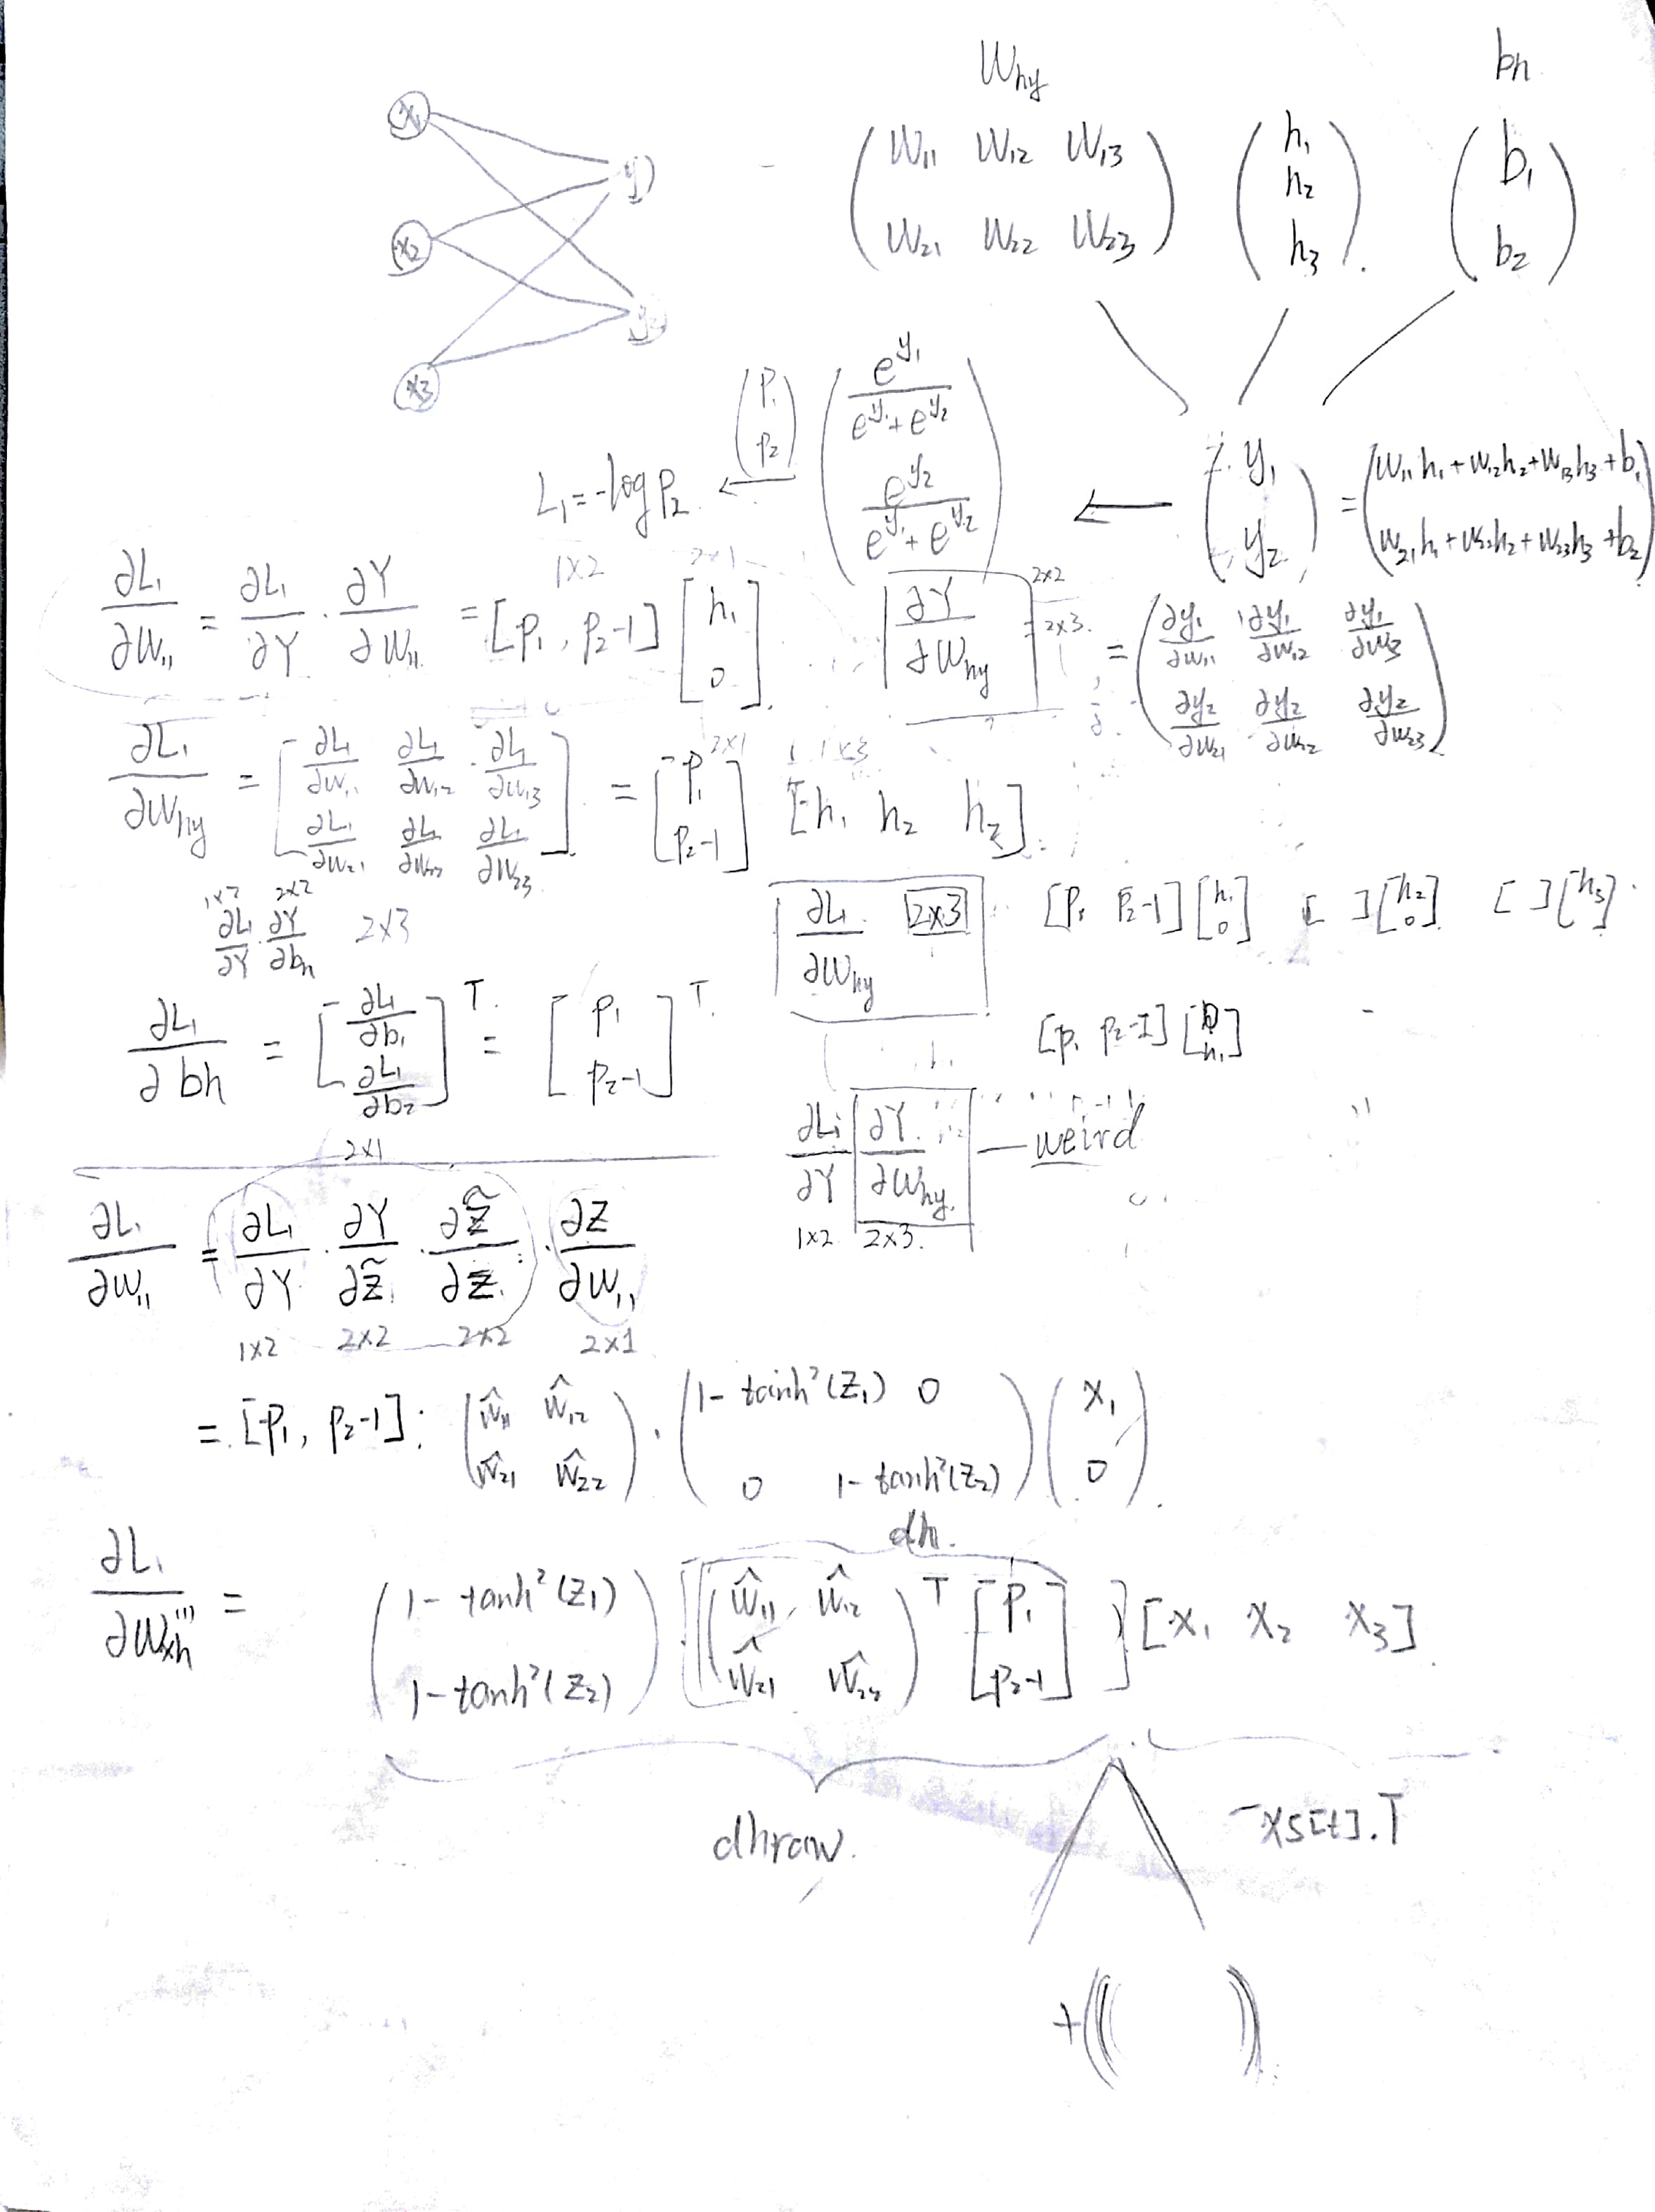 W_hy b_h
x₁ x₂ x₃ y₁ y₂
( W₁₁ W₁₂ W₁₃ ; W₂₁ W₂₂ W₂₃ ) ( h₁ ; h₂ ; h₃ ) ( b₁ ; b₂ )
L₁ = -log P₂ ← ( P₁ ; P₂ ) ( e^y₁ / (e^y₁ + e^y₂) ; e^y₂ / (e^y₁ + e^y₂) ) ← ( y₁ ; y₂ ) = ( W₁₁h₁ + W₁₂h₂ + W₁₃h₃ + b₁ ; W₂₁h₁ + W₂₂h₂ + W₂₃h₃ + b₂ )
1×2 2×1
∂L₁/∂W₁₁ = ∂L₁/∂Y · ∂Y/∂W₁₁ = [P₁, P₂-1] [ h₁ ; 0 ]
∂Y/∂W_hy 2×2 2×3 = ( ∂y₁/∂w₁₁ ∂y₁/∂w₁₂ ∂y₁/∂w₁₃ ; ∂y₂/∂w₂₁ ∂y₂/∂w₂₂ ∂y₂/∂w₂₃ )
2×1 1×3
∂L₁/∂W_hy = [ ∂L₁/∂W₁₁ ∂L₁/∂W₁₂ ∂L₁/∂W₁₃ ; ∂L₁/∂W₂₁ ∂L₁/∂W₂₂ ∂L₁/∂W₂₃ ] = [ P₁ ; P₂-1 ] [ h₁ h₂ h₃ ]
1×2 2×2
∂L₁/∂Y · ∂Y/∂b_h 2×3
∂L₁/∂W_hy 2×3 [P₁ P₂-1] [ h₁ ; 0 ] [ ] [ h₂ ; 0 ] [ ] [ h₃ ]
[P₁ P₂-1] [ 0 ; h₁ ]
∂L₁/∂bh = [ ∂L₁/∂b₁ ; ∂L₁/∂b₂ ]^T = [ P₁ ; P₂-1 ]^T
∂L₁/∂Y ∂Y/∂W_hy — weird
1×2 2×3
2×1
∂L₁/∂W₁₁ = ∂L₁/∂Y · ∂Y/∂z̃ · ∂z̃/∂z · ∂Z/∂W₁₁
1×2 2×2 2×2 2×1
= [P₁, P₂-1] · ( ŵ₁₁ ŵ₁₂ ; ŵ₂₁ ŵ₂₂ ) · ( 1-tanh²(Z₁) 0 ; 0 1-tanh²(Z₂) ) ( x₁ ; 0 )
dh.
∂L₁/∂W_xh^(1) = ( 1-tanh²(Z₁) ; 1-tanh²(Z₂) ) [ ( ŵ₁₁ ŵ₁₂ ; ŵ₂₁ ŵ₂₂ )^T [ P₁ ; P₂-1 ] ] [ x₁ x₂ x₃ ]
dhraw. xs[t].T
+ ( )